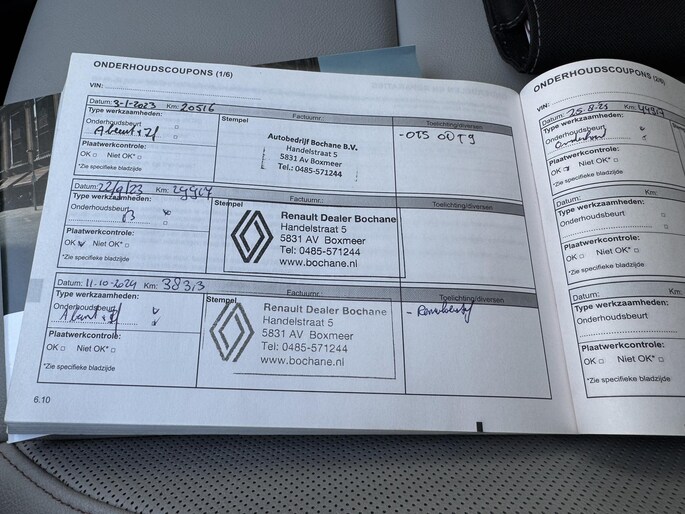 ONDERHOUDSCOUPONS (1/6)
VIN:
Datum: 3-1-2023 Km: 20516
Type werkzaamheden:
Onderhoudsbeurt
Plaatwerkcontrole:
OK Niet OK*
*Zie specifieke bladzijde
Stempel
Factuurnr.
Autobedrijf Bochane B.V.
Handelstraat 5
5831 AV Boxmeer
Tel.: 0485-571244
Toelichting/diversen
-OTS ODT9
Datum: 22/9/23 Km:
Type werkzaamheden:
Onderhoudsbeurt
B
Plaatwerkcontrole:
OK Niet OK*
*Zie specifieke bladzijde
Stempel
Factuurnr.
Renault Dealer Bochane
Handelstraat 5
5831 AV Boxmeer
Tel.: 0485-571244
www.bochane.nl
Toelichting/diversen
Datum: 11-10-2024 Km: 38313
Type werkzaamheden:
Onderhoudsbeurt
Plaatwerkcontrole:
OK Niet OK*
*Zie specifieke bladzijde
Stempel
Factuurnr.
Renault Dealer Bochane
Handelstraat 5
5831 AV Boxmeer
Tel.: 0485-571244
www.bochane.nl
Toelichting/diversen
6.10
ONDERHOUDSCOUPONS (2/6)
VIN:
Datum: 25-8-25 Km: 44917
Type werkzaamheden:
Onderhoudsbeurt
Plaatwerkcontrole:
OK Niet OK*
*Zie specifieke bladzijde
Datum: Km:
Type werkzaamheden:
Onderhoudsbeurt
Plaatwerkcontrole:
OK Niet OK*
*Zie specifieke bladzijde
Datum: Km:
Type werkzaamheden:
Onderhoudsbeurt
Plaatwerkcontrole:
OK Niet OK*
*Zie specifieke bladzijde